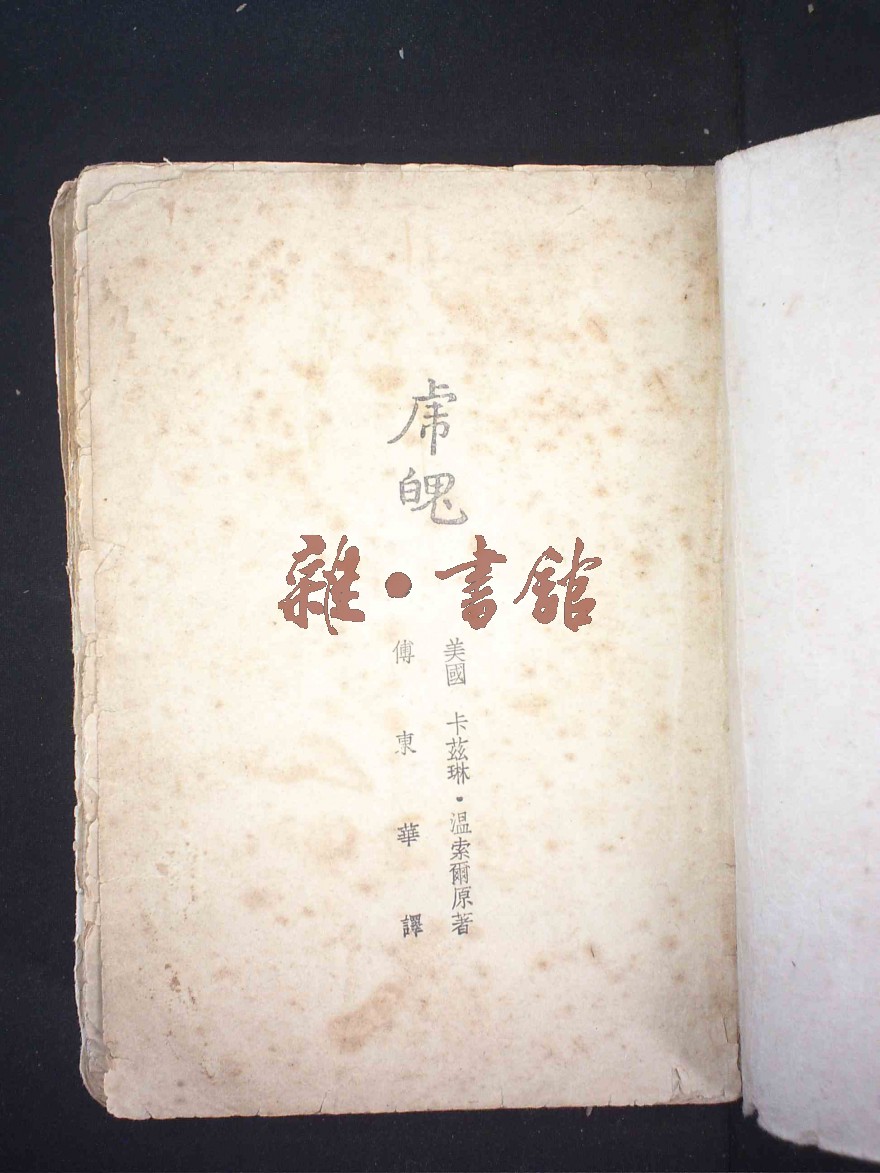 虎魄
雜•書館
美國 卡茲琳•温索爾原著
傅東華譯